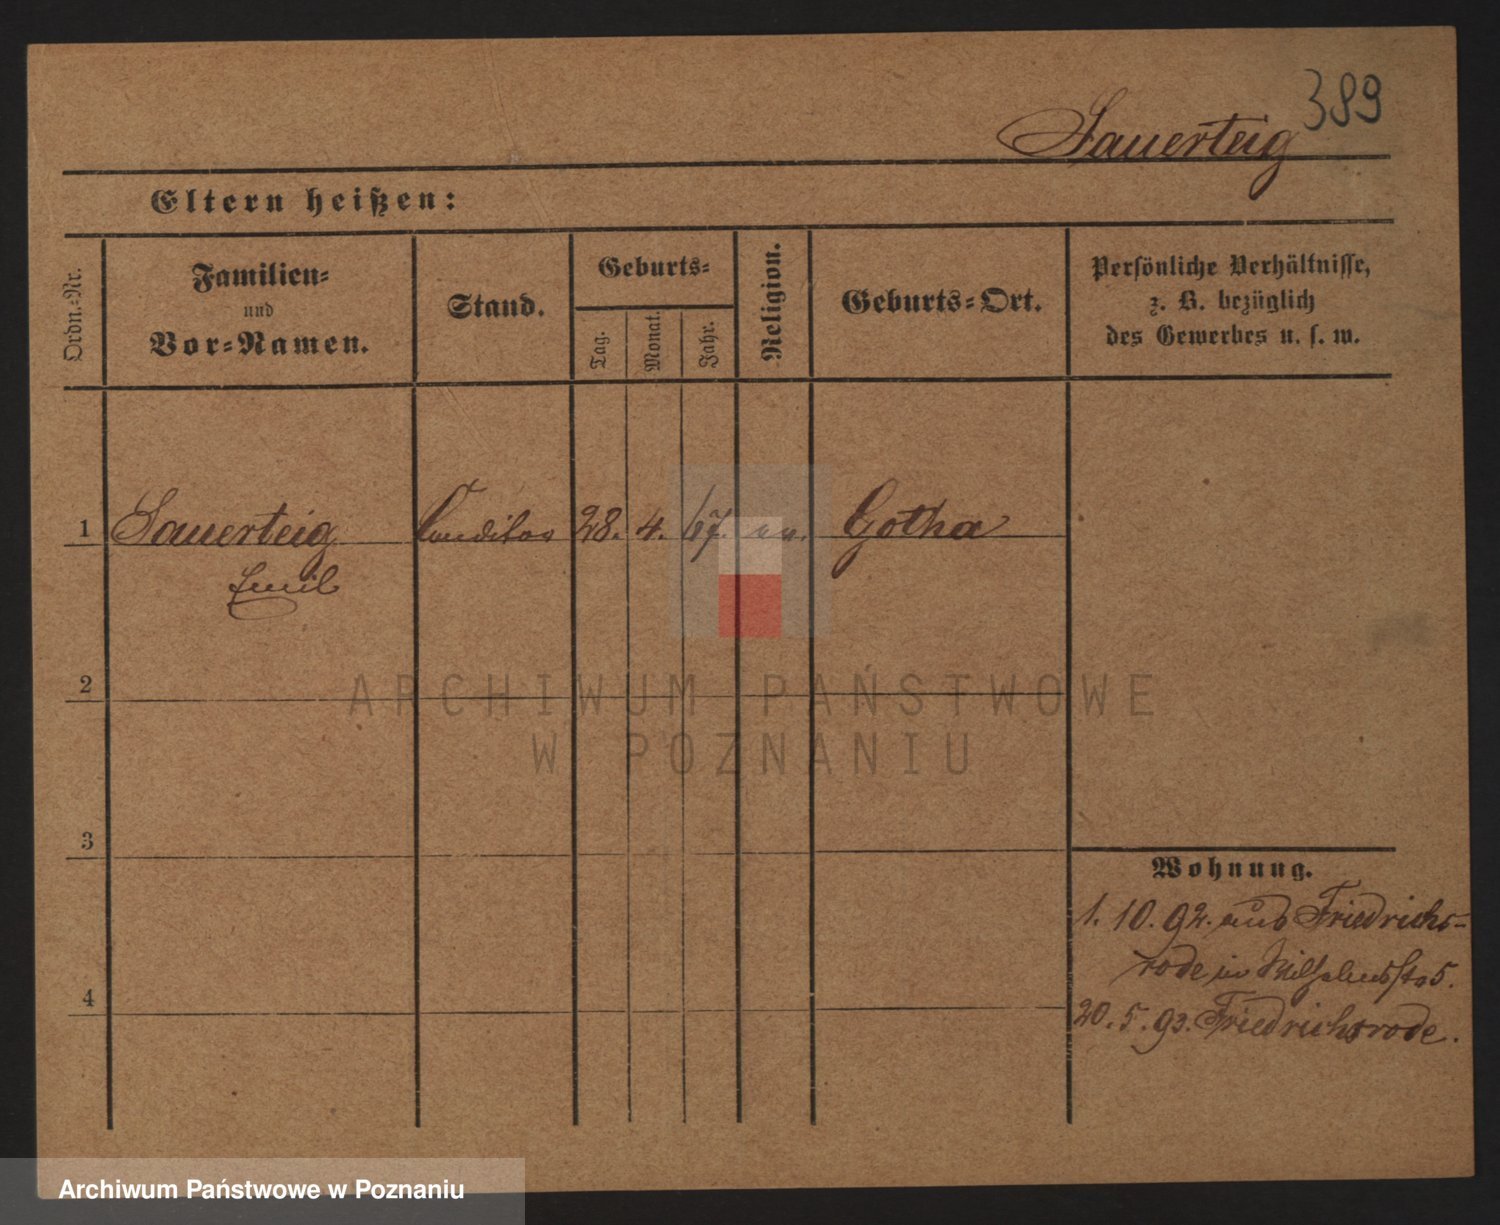 389
Sauerteig
Eltern heißen:
Ordn.-Nr.
Familien-
und
Vor-Namen.
Stand.
Geburts-
Tag.
Monat.
Jahr.
Religion.
Geburts-Ort.
Persönliche Verhältnisse,
z. B. bezüglich
des Gewerbes u. s. w.
1 Sauerteig Conditor 28. 4. 67. ev. Gotha
Emil
2
3
4
Wohnung.
1. 10. 92. aus Friedrichs-
rode in Wilhelmsstr 5.
20. 5. 93. Friedrichsrode.
ARCHIWUM PAŃSTWOWE
W POZNANIU
Archiwum Państwowe w Poznaniu